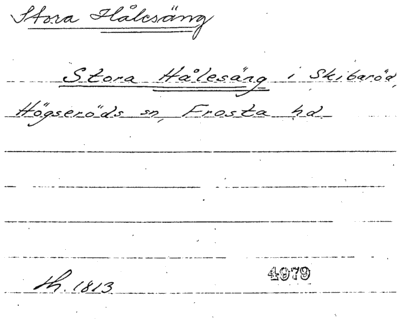 Stora Hålesäng
Stora Hålesäng i Skibaröd,
Högseröds sn, Frosta hd
1813 4979